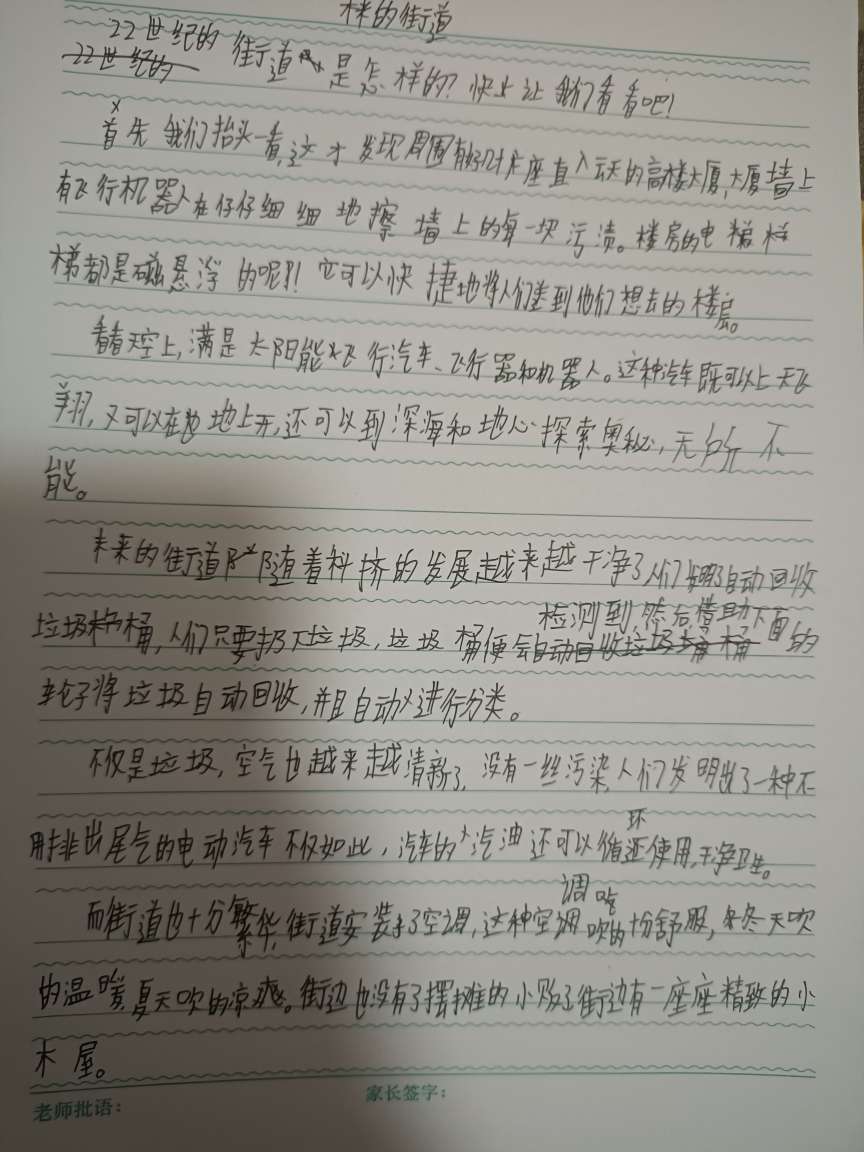 样的街道
22世纪的街道是怎样的？快上让我们看看吧！
22世纪的
首先我们抬头一看，这才发现周围有好几座直入云天的高楼大厦，大厦墙上
有飞行机器人在仔仔细细地擦墙上的每一块污渍。楼房的电梯样
梯都是磁悬浮的呢！它可以快捷地将人们送到他们想去的楼层。
看看天空上，满是太阳能飞行汽车、飞行器和机器人。这种汽车既可以上天飞
翔，又可以在地上开，还可以到深海和地心探索奥秘，无所不
能。
未来的街道随着科挤的发展越来越干净了人们发明了自动回收
检测到，然后借助下面的
垃圾桶，人们只要扔下垃圾，垃圾桶便会自动回收垃圾桶
轮子将垃圾自动回收，并且自动进行分类。
不仅是垃圾，空气也越来越清新了，没有一丝污染，人们发明出了一种不
用排出尾气的电动汽车不仅如此，汽车的汽油还可以循环使用，干净卫生。
而街道也十分繁华，街道安装了空调，这种空调吹的十分舒服，冬天吹
的温暖，夏天吹的凉爽。街边也没有了摆摊的小贩了街边有一座座精致的小
木屋。
老师批语：
家长签字：